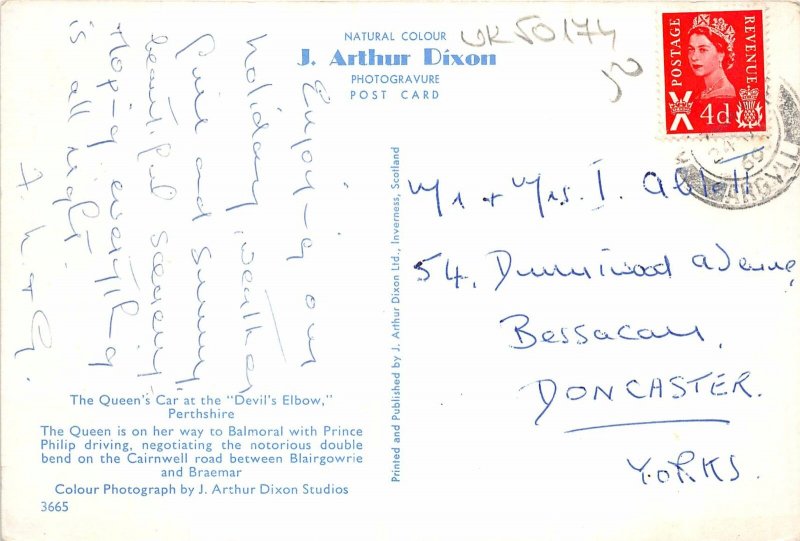 NATURAL COLOUR
J. Arthur Dixon
PHOTOGRAVURE
POST CARD
UK50174
POSTAGE
REVENUE
4d
69
ARGYLL
Enjoy-g our
holiday, weather
fine and sunny,
beautiful scenery.
Hop-g everything
is all right
Mr + Mrs. I. Ablett
54, Dunniwood Avenue,
Bessacarr,
DONCASTER.
YORKS.
Printed and Published by J. Arthur Dixon Ltd., Inverness, Scotland
The Queen's Car at the "Devil's Elbow,"
Perthshire
The Queen is on her way to Balmoral with Prince
Philip driving, negotiating the notorious double
bend on the Cairnwell road between Blairgowrie
and Braemar
Colour Photograph by J. Arthur Dixon Studios
3665